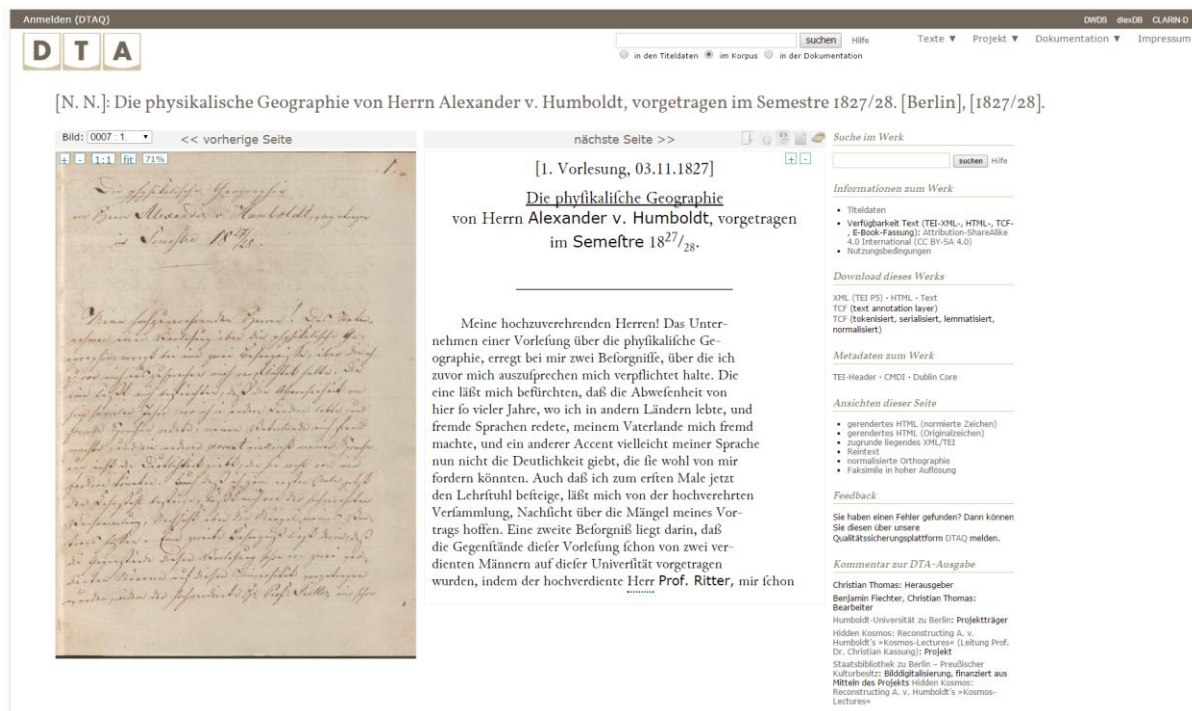 Anmelden (DTAQ)
DWDS dlexDB CLARIN-D
DTA
suchen Hilfe
in den Titeldaten im Korpus in der Dokumentation
Texte ▼ Projekt ▼ Dokumentation ▼ Impressum
[N. N.]: Die physikalische Geographie von Herrn Alexander v. Humboldt, vorgetragen im Semestre 1827/28. [Berlin], [1827/28].
Bild: 0007 : 1. << vorherige Seite
nächste Seite >>
+ - 1:1 fit 71%
1.
Die physikalische Geographie
von Herrn Alexander v. Humboldt, vorgetragen
im Semestre 1827/28.
Meine hochzuverehrenden Herren! Das Unter-
nehmen einer Vorlesung über die physikalische Ge-
+ -
[1. Vorlesung, 03.11.1827]
Die phyſikaliſche Geographie
von Herrn Alexander v. Humboldt, vorgetragen
im Semeſtre 18²⁷/₂₈.
Meine hochzuverehrenden Herren! Das Unter-
nehmen einer Vorleſung über die phyſikaliſche Ge-
ographie, erregt bei mir zwei Beſorgniſſe, über die ich
zuvor mich auszuſprechen mich verpflichtet halte. Die
eine läßt mich befürchten, daß die Abweſenheit von
hier ſo vieler Jahre, wo ich in andern Ländern lebte, und
fremde Sprachen redete, meinem Vaterlande mich fremd
machte, und ein anderer Accent vielleicht meiner Sprache
nun nicht die Deutlichkeit giebt, die ſie wohl von mir
fordern könnten. Auch daß ich zum erſten Male jetzt
den Lehrſtuhl beſteige, läßt mich von der hochverehrten
Verſammlung, Nachſicht über die Mängel meines Vor-
trags hoffen. Eine zweite Beſorgniß liegt darin, daß
die Gegenſtände dieſer Vorleſung ſchon von zwei ver-
dienten Männern auf dieſer Univerſität vorgetragen
wurden, indem der hochverdiente Herr Prof. Ritter, mir ſchon
Suche im Werk
suchen Hilfe
Informationen zum Werk
Titeldaten
Verfügbarkeit Text (TEI-XML-, HTML-, TCF-
, E-Book-Fassung): Attribution-ShareAlike
4.0 International (CC BY-SA 4.0)
Nutzungsbedingungen
Download dieses Werks
XML (TEI P5) · HTML · Text
TCF (text annotation layer)
TCF (tokenisiert, serialisiert, lemmatisiert,
normalisiert)
Metadaten zum Werk
TEI-Header · CMDI · Dublin Core
Ansichten dieser Seite
gerendertes HTML (normierte Zeichen)
gerendertes HTML (Originalzeichen)
zugrunde liegendes XML/TEI
Reintext
normalisierte Orthographie
Faksimile in hoher Auflösung
Feedback
Sie haben einen Fehler gefunden? Dann können
Sie diesen über unsere
Qualitätssicherungsplattform DTAQ melden.
Kommentar zur DTA-Ausgabe
Christian Thomas: Herausgeber
Benjamin Fiechter, Christian Thomas:
Bearbeiter
Humboldt-Universität zu Berlin: Projektträger
Hidden Kosmos: Reconstructing A. v.
Humboldt's »Kosmos-Lectures« (Leitung Prof.
Dr. Christian Kassung): Projekt
Staatsbibliothek zu Berlin – Preußischer
Kulturbesitz: Bilddigitalisierung, finanziert aus
Mitteln des Projekts Hidden Kosmos:
Reconstructing A. v. Humboldt's »Kosmos-
Lectures«